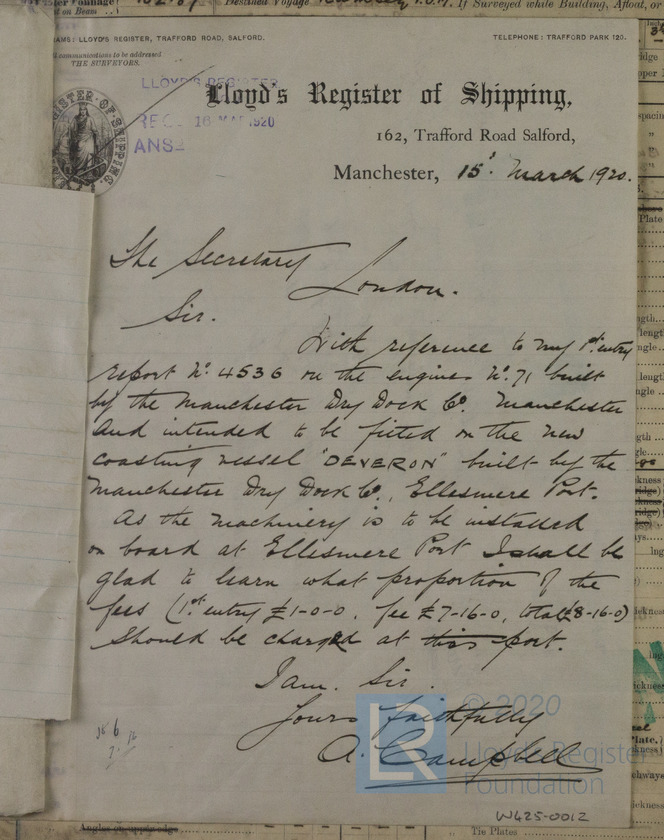 If Surveyed while Building, Afloat, or
LLOYD'S REGISTER, TRAFFORD ROAD, SALFORD.
TELEPHONE: TRAFFORD PARK 120.
communications to be addressed
THE SURVEYORS.
LLOYD'S REGISTER
16 MAR 1920
Lloyd's Register of Shipping,
162, Trafford Road Salford,
Manchester, 15' March 1920.
The Secretary
London.
Sir.
With reference to my 1st entry
report No. 4536 on the engines No. 71 built
by the Manchester Dry Dock Co. Manchester
and intended to be fitted on the new
coasting vessel "DEVERON" built by the
Manchester Dry Dock Co., Ellesmere Port.
As the machinery is to be installed
on board at Ellesmere Port I shall be
glad to learn what proportion of the
fees (1st entry £1-0-0. fee £7-16-0, total £8-16-0)
should be charged at this port.
I am. Sir.
Yours faithfully
A. Campbell
LR
© 2020
Lloyd's Register
Foundation
W425-0012
Tie Plates